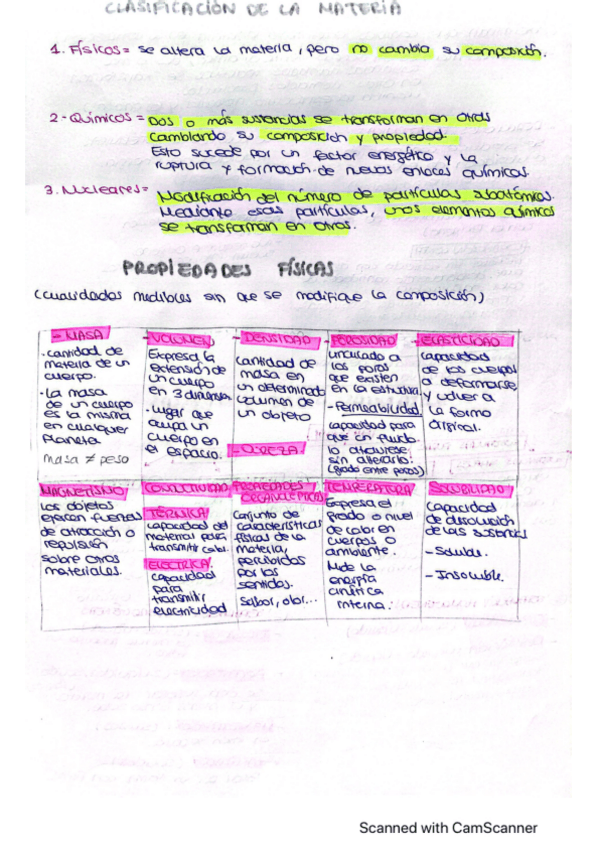 CLASIFICACIÓN DE LA MATERIA
1. Físicos = se altera la materia, pero no cambia su composición.
2 - Químicos = Dos o más sustancias se transforman en otras
cambiando su composición y propiedad.
Esto sucede por un factor energético y la
ruptura y formación de nuevos enlaces químicos.
3. Nucleares = Modificación del número de partículas subatómicas.
Mediante esas partículas, unos elementos químicos
se transforman en otros.
PROPIEDADES FÍSICAS
(cualidades medibles sin que se modifique la composición)
- MASA
· cantidad de
materia de un
cuerpo.
· La masa
de un cuerpo
es la misma
en cualquier
planeta
masa ≠ peso
- VOLUMEN
Expresa la
extensión de
un cuerpo
en 3 dimensio
· lugar que
ocupa un
cuerpo en
el espacio.
- DENSIDAD
cantidad de
masa en
un determinado
volumen de
un objeto
- DUREZA.
- POROSIDAD
vinculado a
los poros
que existen
en la estructura
- Permeabilidad
capacidad para
que un fluido
lo atraviese
sin alterarlo.
(grado entre poros)
- ELASTICIDAD
capacidad
de los cuerpos
a deformarse
y volver a
la forma
original.
MAGNETISMO
Los objetos
ejercen fuerzas
de atracción o
repulsión
sobre otros
materiales.
CONDUCTIVIDAD
TÉRMICA
capacidad del
material para
transmitir calor.
ELÉCTRICA
capacidad
para
transmitir
electricidad
PROPIEDADES
ORGANOLÉPTICAS
Conjunto de
características
físicas de la
materia,
percibidas
por los
sentidos.
Sabor, olor...
TEMPERATURA
Expresa el
grado o nivel
de calor en
cuerpos o
ambiente.
Mide la
energía
cinética
interna.
SOLUBILIDAD
Capacidad
de disolución
de las sustancias
- Soluble.
- Insoluble.
Scanned with CamScanner